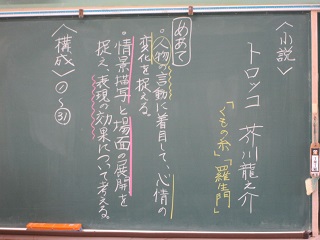 〈小説〉
トロッコ 芥川龍之介
「くもの糸」「羅生門」
めあて
・人物の言動に着目して、心情の
変化を捉える。
・情景描写と場面の展開を
捉え、表現の効果について考える。
〈構成〉①〜㉛